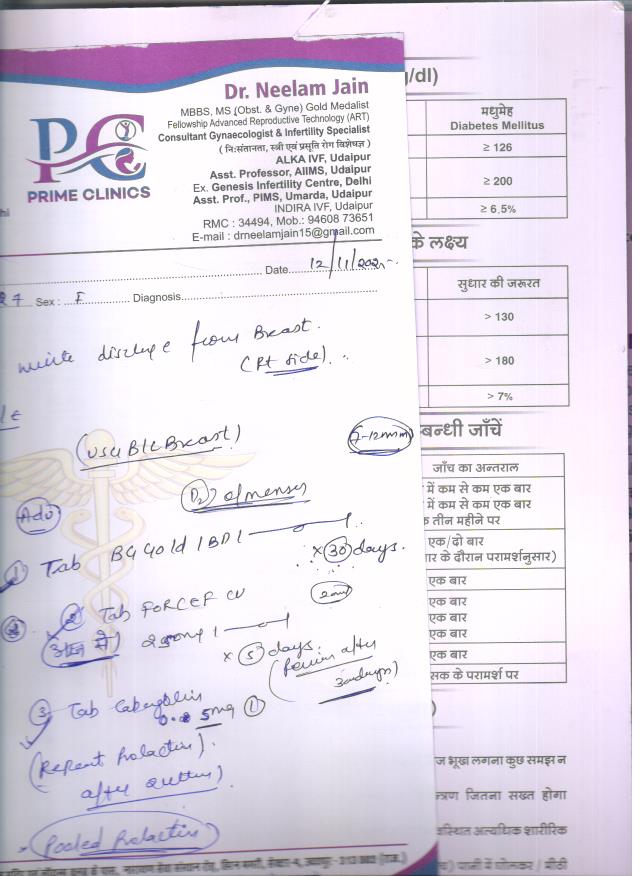 Dr. Neelam Jain
MBBS, MS (Obst. & Gyne) Gold Medalist
Fellowship Advanced Reproductive Technology (ART)
Consultant Gynaecologist & Infertility Specialist
( नि:संतानता, स्त्री एवं प्रसूति रोग विशेषज्ञ )
ALKA IVF, Udaipur
Asst. Professor, AIIMS, Udaipur
Ex. Genesis Infertility Centre, Delhi
Asst. Prof., PIMS, Umarda, Udaipur
INDIRA IVF, Udaipur
RMC : 34494, Mob.: 94608 73651
E-mail : drneelamjain15@gmail.com
PC
PRIME CLINICS
Date 12/11/202
Sex : F Diagnosis
white discharge from Breast.
(Rt side).
(USG B/L Breast)
7-12mm
Adv
(D2) of menses
1 Tab BG Gold 1BD1
x 30 days.
2 Tab FORCEF CV
250mg 1
x 5 days.
(review after
30 days)
3 Tab Cabergolin
0.5mg 1
(Repeat Prolactin).
after
(Pooled Prolactin)
g/dl)
मधुमेह
Diabetes Mellitus
≥ 126
≥ 200
≥ 6.5%
के लक्ष्य
सुधार की जरूरत
> 130
> 180
> 7%
बन्धी जाँचें
जाँच का अन्तराल
में कम से कम एक बार
में कम से कम एक बार
तीन महीने पर
एक/दो बार
के दौरान परामर्शनुसार)
एक बार
एक बार
एक बार
एक बार
एक बार
के परामर्श पर
भूखा लगना कुछ समझ न
जितना सख्त होगा
अत्यधिक शारीरिक
पानी में घोलकर / मीठी